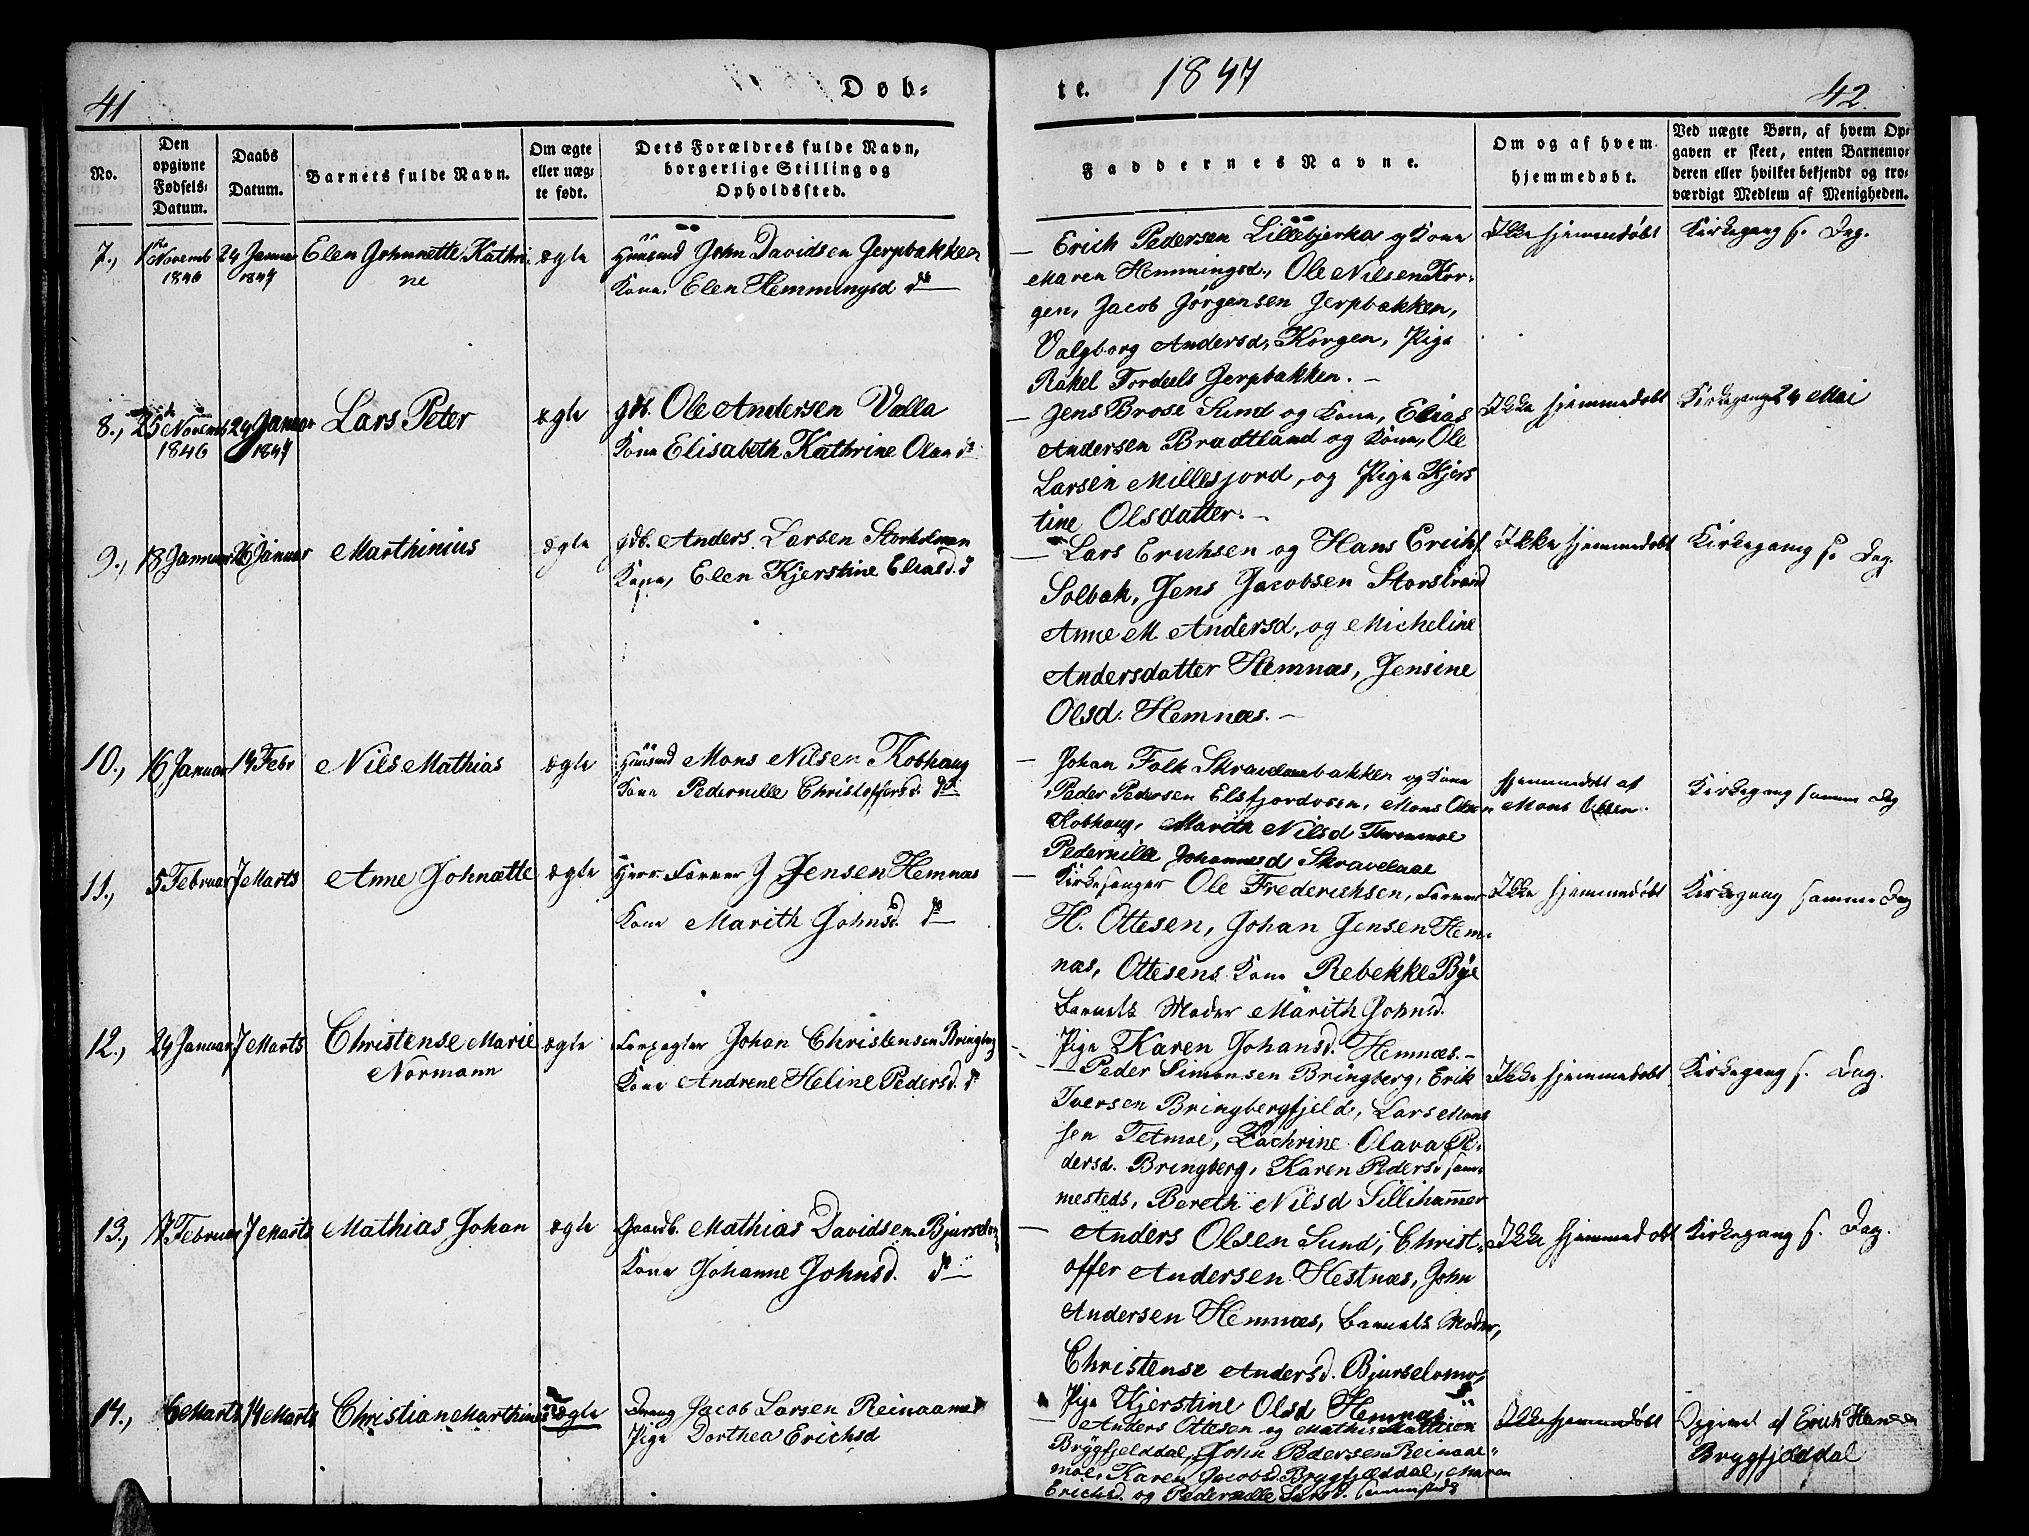 41
Døb-
te. 1847
42.
No.
Den
opgivne
Fødsels-
Datum.
Daabs
Datum.
Barnets fulde Navn.
Om ægte
eller uæg-
te født.
Dets Forældres fulde Navn,
borgerlige Stilling og
Opholdssted.
Faddernes Navne.
Om og af hvem
hjemmedøbt.
Ved uægte Børn, af hvem Op-
gaven er skeet, enten Barnemo-
deren eller hvilket bekjendt og tro-
værdigt Medlem af Menigheden.
7., 1ste Novemb 1846
24 Januar 1847
Elen Johnette Kathri-
ne
ægte
Huusmd John Davidsen Jerpbakken
Kone, Elen Hemmingsd do
— Erich Pedersen Lillebjerka og Kone
Maren Hemmingsd., Ole Nilsen Kor-
gen, Jacob Jørgensen Jerpbakken,
Valgborg Andersd, Korgen, Pige
Rakel Tordeels Jerpbakken. —
Ikke hjemmedøbt
Kirkegang s. Dag.
8., 25de Novemb 1846
24 Januar 1847
Lars Peter
ægte
gdb. Ole Andersen Valla
Kone Elisabeth Kathrine Olava do
— Jens Brose Sund og Kone, Elias
Andersen Bradtland og Kone, Ole
Larsen Millesjord, og Pige Kjers
tine Olsdatter. —
Ikke hjemmedøbt
Kirkegang 24 Mai
9., 18 Januar
26 Januar
Marthinius
ægte
gdb. Anders Larsen
Kone, Elen Kjerstine Eliasd. d
— Lars Erichsen og Hans Erichs
Solbak, Jens Jacobsen Storstrand
Anne M. Andersd, og Micheline
Andersdatter Hemnæs, Jensine
Olsd. Hemnæs. —
Ikke hjemmedøbt
Kirkegang s. Dag.
10., 16 Januar
14 Febr
Nils Mathias
ægte
Huusmd Mons Nilsen Kobhaug
Kone Pedernille Christoffersd. do
— Johan Falk Skravelaaebakken og Kone
Peder Pedersen Elsfjordosen, Mons Olsen
Kobhaug, Marith Nilsd
Pedernille Johannesd Skravelaae
hjemmedøbt af
Mons Olsen.
Kirkegang samme Dag
11., 5 Februar
7 Marts
Anne Johnætte
ægte
Herr Farver J Jensen Hemnæs
Kone Marith Johnsd. do
— Kirkesanger Ole Frederichsen, Farver
H. Ottesen, Johan Jensen Hem-
næs, Ottesens Kone Rebekke Bye
Barnets Moder Marith Johnsd.
Pige Karen Johansd. Hemnæs. —
Ikke hjemmedøbt
Kirkegang samme Dag
12., 24 Januar
7 Marts
Christense Marie
Normann
ægte
Forpagter Johan Christensen Bringberg
Kone Andrene Heline Pedersd. d
— Peder Simonsen Bringberg, Erik
Iversen Bringbergfjeld, Lars Mons
sen Tetmoe, Zachrine Olava Pe-
dersd. Bringberg, Karen Pedersd sam-
mesteds, Bereth Nilsd Sillihammer
Ikke hjemmedøbt
Kirkegang s. Dag.
13., 7 Februar
7 Marts
Mathias Johan
ægte
Gaardb. Mathias Davidsen
Kone Johanne Johnsd. do
— Anders Olsen Sund, Christ-
offer Andersen Hestnæs, John
Andersen Hemnæs, Barnets Moder,
Christense Andersd. Bjurselvmo,
Pige Kjerstine Olsd Hemnæs
Ikke hjemmedøbt
Kirkegang s. Dag.
14., 6 Marts
14 Marts
Christiane Marthine
uægte
Dreng Jacob Larsen Reinaamo
Pige Dorthea Erichsd
— Anders Ottesen og Mathis
Brygfjelddal, John Pedersen Reinaa-
moe, Karen Jacobsd Brygfjælddal, Maren
Erichsd. og Pedernille Larsd. sammesteds
Ikke hjemmedøbt
Opgivet af Erich Hansen
Brygfjelddal